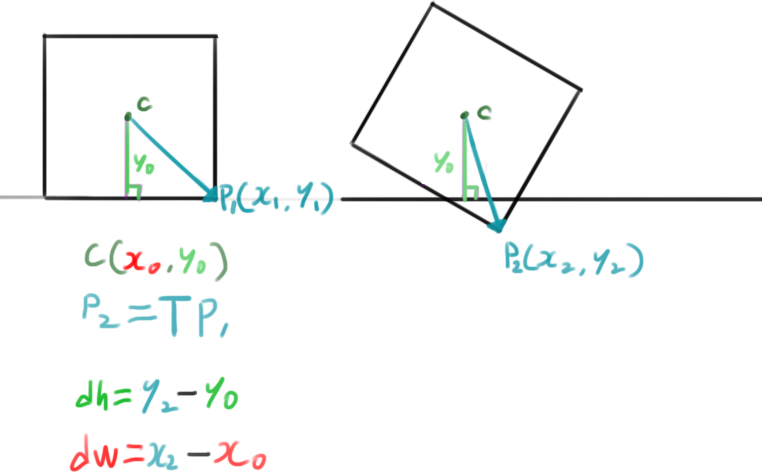 C
C
y₀
y₀
P₁(x₁, y₁)
P₂(x₂, y₂)
C(x₀, y₀)
P₂ = TP₁
dh = y₂ - y₀
dw = x₂ - x₀